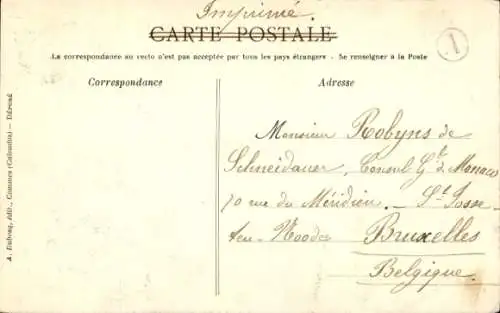 Imprimé.
CARTE POSTALE
La correspondance au recto n'est pas acceptée par tous les pays étrangers - Se renseigner à la Poste
1
Correspondance
Adresse
Monsieur Robyns de
Schneidauer, Consul Gl de Monaco
70 rue du Méridien. - St Josse
ten-Noode Bruxelles
Belgique.
édit., Commes (Calvados) — Déposé